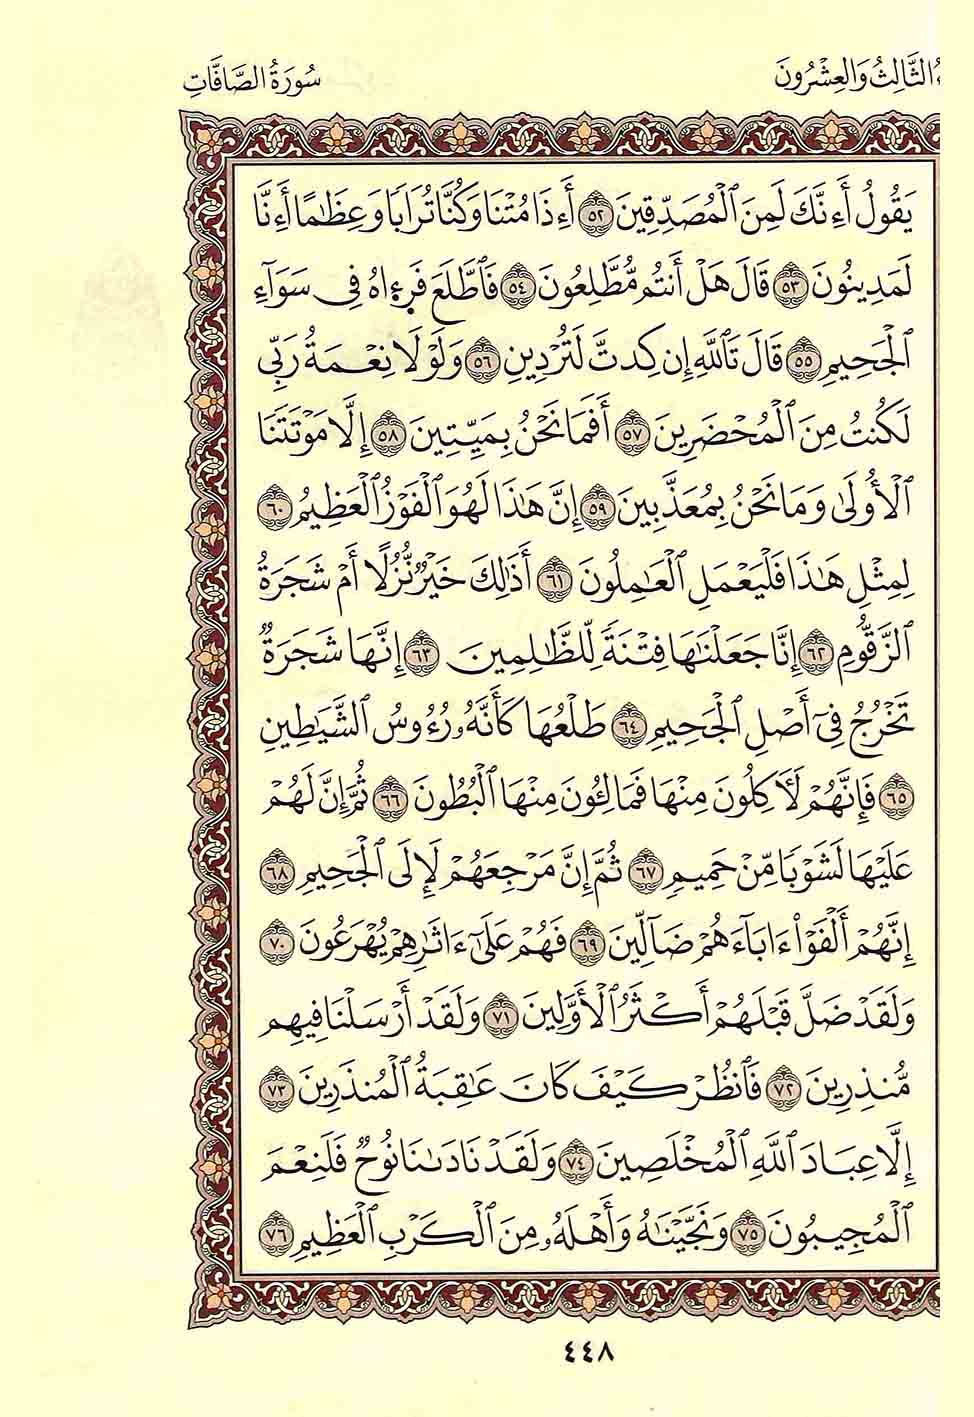 ءُ الثَّالِثُ وَالعِشْرُونَ
سُورَةُ الصَّافَّاتِ
يَقُولُ أَءِنَّكَ لَمِنَ ٱلْمُصَدِّقِينَ ٥٢ أَءِذَا مِتْنَا وَكُنَّا تُرَابًا وَعِظَٰمًا أَءِنَّا
لَمَدِينُونَ ٥٣ قَالَ هَلْ أَنتُم مُّطَّلِعُونَ ٥٤ فَٱطَّلَعَ فَرَءَاهُ فِى سَوَآءِ
ٱلْجَحِيمِ ٥٥ قَالَ تَٱللَّهِ إِن كِدتَّ لَتُرْدِينِ ٥٦ وَلَوْلَا نِعْمَةُ رَبِّى
لَكُنتُ مِنَ ٱلْمُحْضَرِينَ ٥٧ أَفَمَا نَحْنُ بِمَيِّتِينَ ٥٨ إِلَّا مَوْتَتَنَا
ٱلْأُولَىٰ وَمَا نَحْنُ بِمُعَذَّبِينَ ٥٩ إِنَّ هَٰذَا لَهُوَ ٱلْفَوْزُ ٱلْعَظِيمُ ٦٠
لِمِثْلِ هَٰذَا فَلْيَعْمَلِ ٱلْعَٰمِلُونَ ٦١ أَذَٰلِكَ خَيْرٌ نُّزُلًا أَمْ شَجَرَةُ
ٱلزَّقُّومِ ٦٢ إِنَّا جَعَلْنَٰهَا فِتْنَةً لِّلظَّٰلِمِينَ ٦٣ إِنَّهَا شَجَرَةٌ
تَخْرُجُ فِىٓ أَصْلِ ٱلْجَحِيمِ ٦٤ طَلْعُهَا كَأَنَّهُۥ رُءُوسُ ٱلشَّيَٰطِينِ
٦٥ فَإِنَّهُمْ لَءَاكِلُونَ مِنْهَا فَمَالِـُٔونَ مِنْهَا ٱلْبُطُونَ ٦٦ ثُمَّ إِنَّ لَهُمْ
عَلَيْهَا لَشَوْبًا مِّنْ حَمِيمٍ ٦٧ ثُمَّ إِنَّ مَرْجِعَهُمْ لَإِلَى ٱلْجَحِيمِ ٦٨
إِنَّهُمْ أَلْفَوْا۟ ءَابَآءَهُمْ ضَآلِّينَ ٦٩ فَهُمْ عَلَىٰٓ ءَاثَٰرِهِمْ يُهْرَعُونَ ٧٠
وَلَقَدْ ضَلَّ قَبْلَهُمْ أَكْثَرُ ٱلْأَوَّلِينَ ٧١ وَلَقَدْ أَرْسَلْنَا فِيهِم
مُّنذِرِينَ ٧٢ فَٱنظُرْ كَيْفَ كَانَ عَٰقِبَةُ ٱلْمُنذَرِينَ ٧٣
إِلَّا عِبَادَ ٱللَّهِ ٱلْمُخْلَصِينَ ٧٤ وَلَقَدْ نَادَىٰنَا نُوحٌ فَلَنِعْمَ
ٱلْمُجِيبُونَ ٧٥ وَنَجَّيْنَٰهُ وَأَهْلَهُۥ مِنَ ٱلْكَرْبِ ٱلْعَظِيمِ ٧٦
٤٤٨